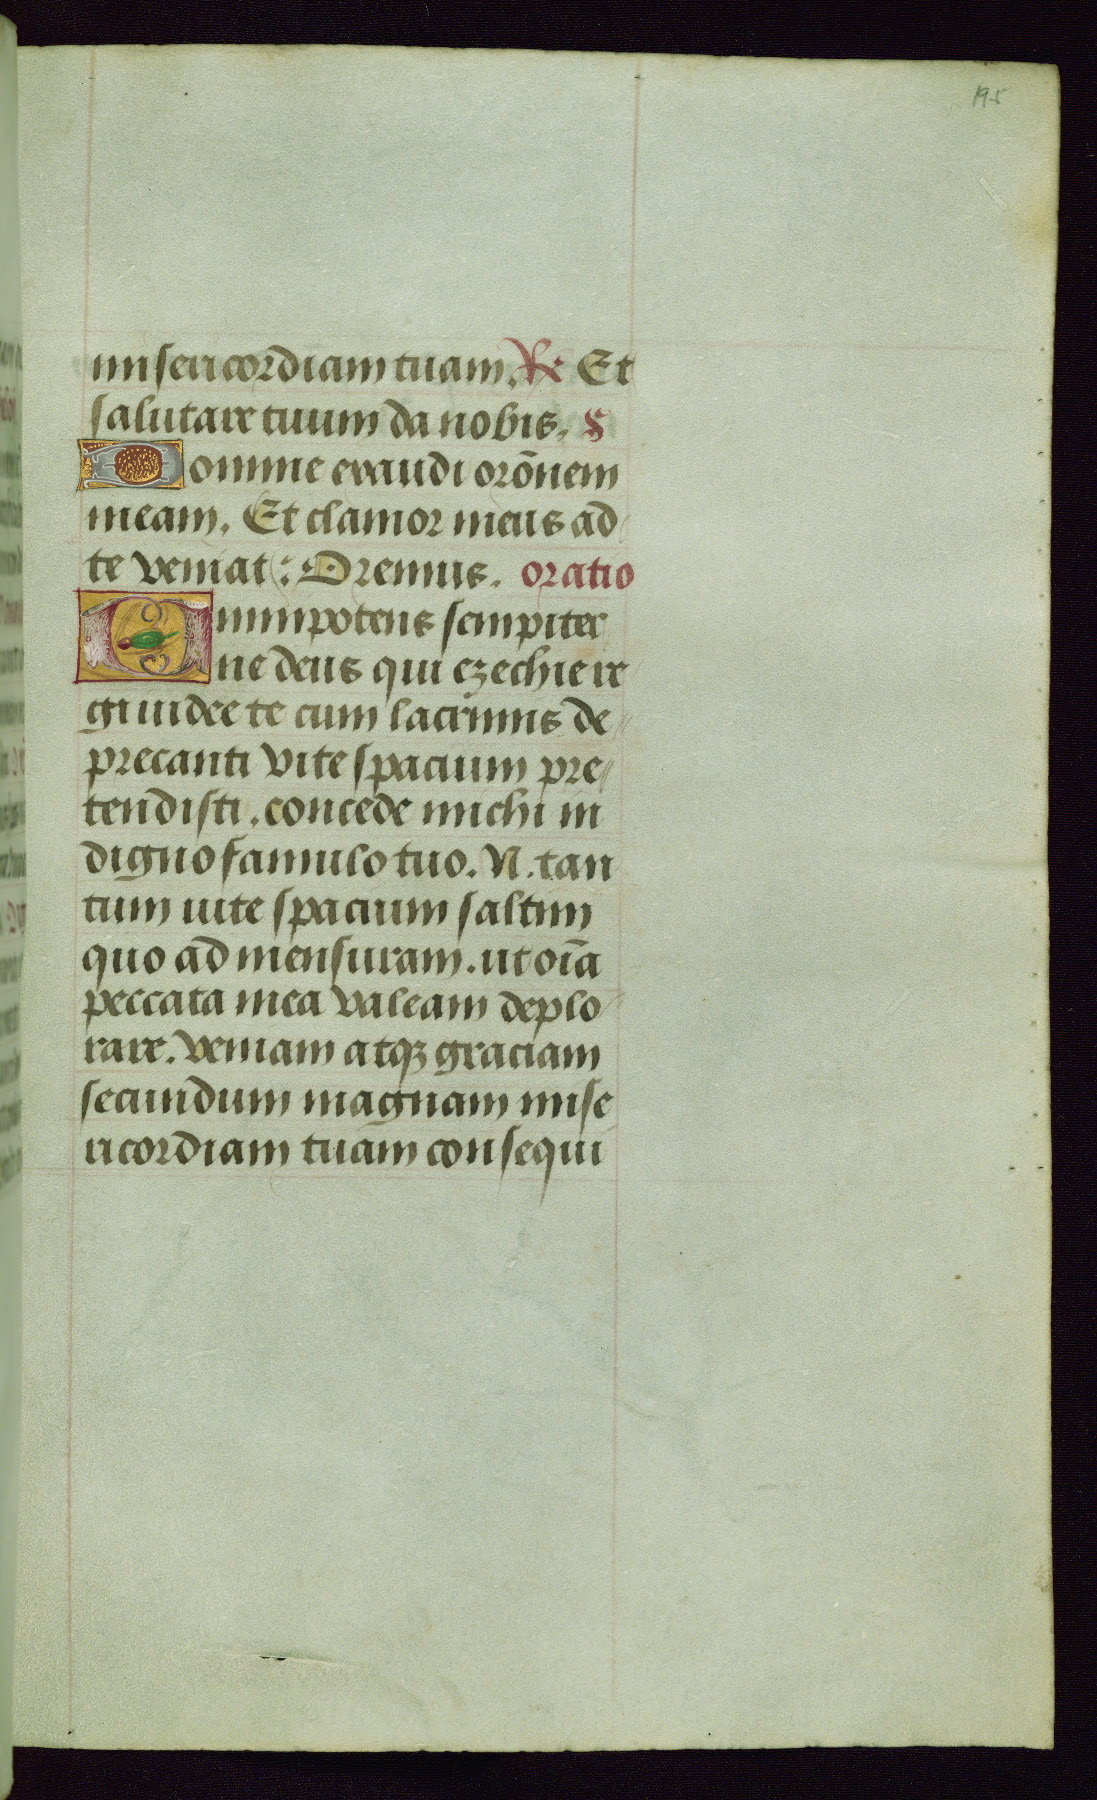 195
misericordiam tuam. R Et
salutare tuum da nobis.
Domine exaudi orōnem
meam. Et clamor meus ad
te veniat: Oremus. oratio
Omnipotens sempiter
ne deus qui ezechie re
gi iudee te cum lacrimis de
precanti vite spacium pre
tendisti. concede michi in
digno famulo tuo. N. tan
tum uite spacium saltim
quo ad mensuram. ut oīa
peccata mea valeam deplo
rare. veniam atqꝫ graciam
secundum magnam mise
ricordiam tuam consequi